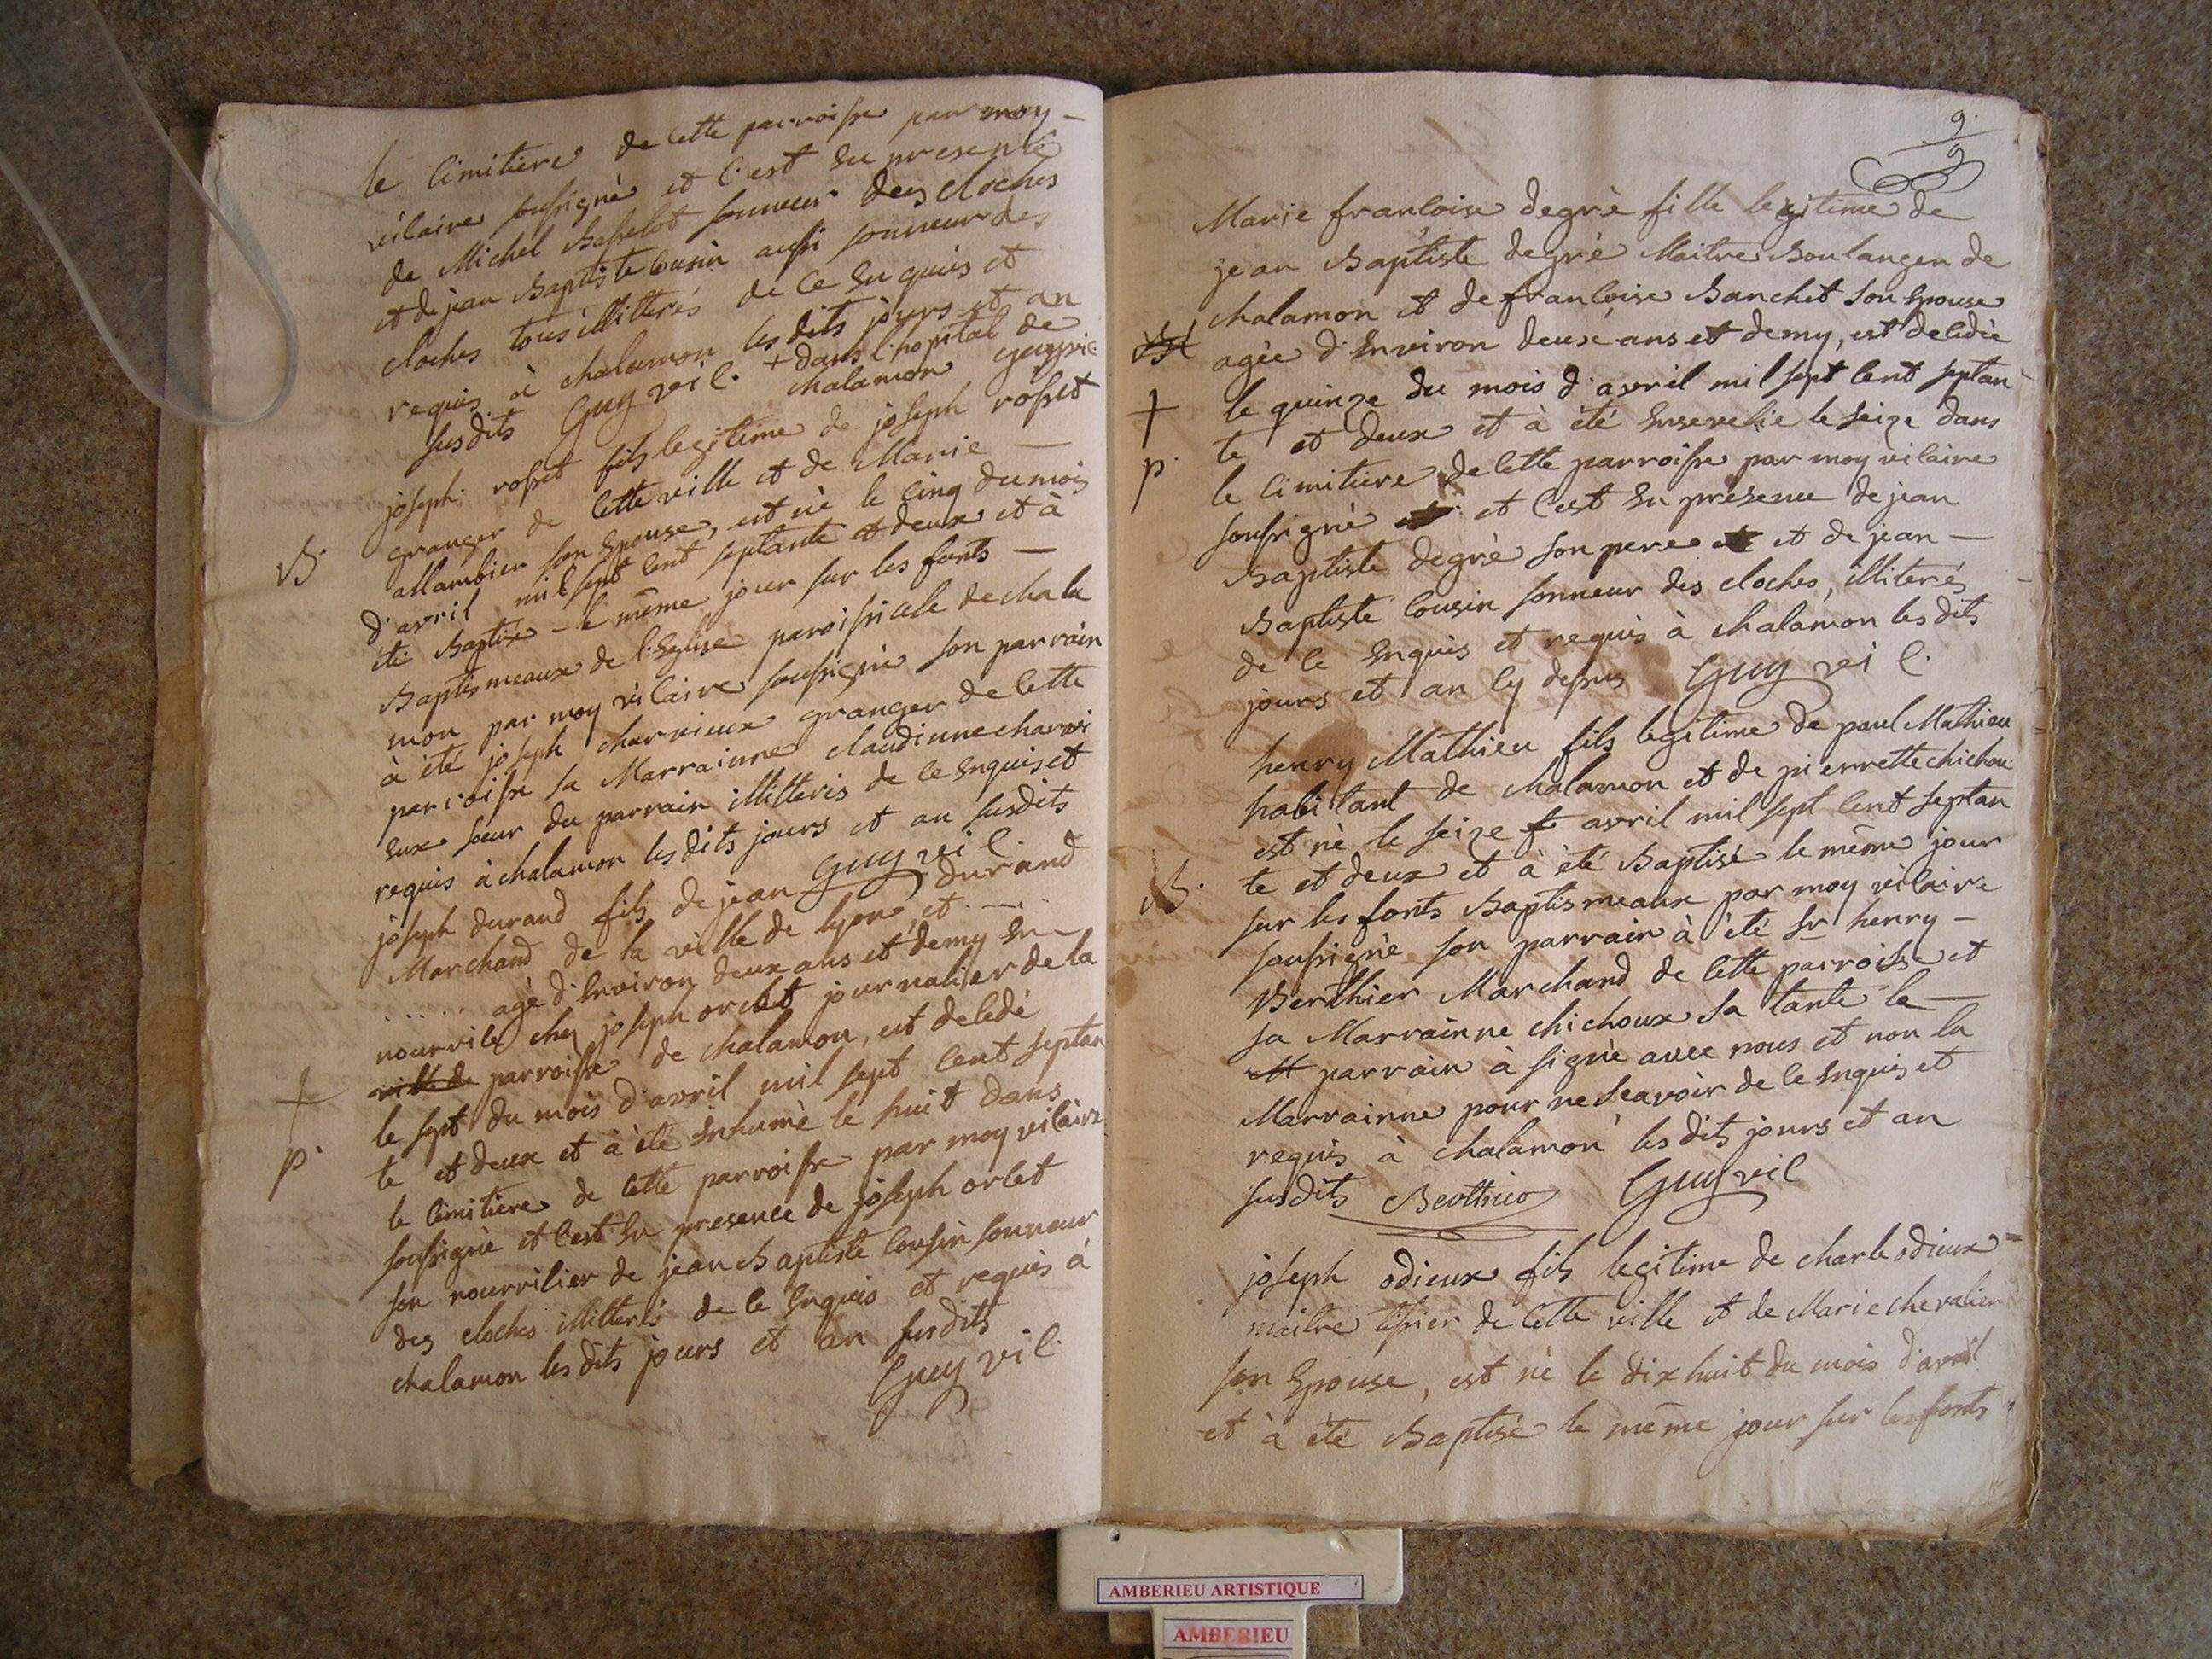 le Cimitiere de Cette parroisse par moy -
vicaire soussignè et C'est En presence
de Michel Basselot sonneur des Cloches
et de jean Baptiste Cousin aussi sonneur des
Cloches tous illitterés de Ce Enquis et
requis à chalamon les dits jours et an
susdits Guy vic. + dans l'hopital de
chalamon
joseph rosset fils legitime de joseph rosset
granger de Cette ville et de Marie —
allambier son Epouse, est nè le Cinq du mois
B.
d'avril mil sept Cent septante et deux et à
été Baptisé - le même jour sur les fonts —
Baptismeaux de l'Eglise paroissiale de chala
mon par moy vicaire soussignè son parrain
à été joseph charvieux granger de Cette
parroisse sa Marrainne claudinne charvi
eux soeur du parrain illitteris de Ce Enquis et
requis à chalamon les dits jours et an susdits
Guy vic.
joseph durand fils de jean durand
Marchand de la ville de lyon et .....
...... agè d'Environ deux ans et demy En -
nourrice chez joseph orcet journalier de la
ville de parroisse de chalamon, est decedé
+
le sept du mois d'avril mil sept Cent septan
te et deux et à été inhumè le huit dans
p.
le Cimitiere de Cette parroisse par moy vicaire
soussignè et C'est En presence de joseph orcet
son nourricier de jean Baptiste Cousin sonneur
des Cloches illitterés de Ce Enquis et requis à
chalamon les dits jours et an susdits
Guy vic.
9.
9
Marie françoise degrè fille legitime de
jean Baptiste degrè Maitre Boulanger de
chalamon et de françoise Banchet son Epouse
agèe d'Environ deux ans et demy, est decedèe
+
le quinze du mois d'avril mil sept Cent septan
te et deux et à été Ensevelie le seize dans
p.
le Cimitiere de Cette parroisse par moy vicaire
soussignè et C'est En présence de jean
Baptiste degrè son pere et de jean —
Baptiste Cousin sonneur des cloches, illiterés
de Ce Enquis et requis à chalamon les dits
jours et an Cy dessus Guy vic.
henry Mathieu fils legitime de paul Mathieu
habitant de chalamon et de pierrette chichou
est nè le seize avril mil sept Cent septan
B.
te et deux et à été Baptisé le même jour
sur les fonts Baptismeaux par moy vicaire
soussignè son parrain à été Sr henry -
Berthier Marchand de Cette parroisse et
sa Marrainne chichoux sa tante le —
parrain à signè avec nous et non la
Marrainne pour ne sçavoir de Ce Enquis et
requis à chalamon les dits jours et an
susdits Berthier Guy vic
joseph odieux fils legitime de charle odieux
maitre tissier de Cette ville et de Marie chevalier
son Epouse, est nè le dix huit du mois d'avril
et à été Baptisé le même jour sur les fonts
AMBERIEU ARTISTIQUE
AMBERIEU